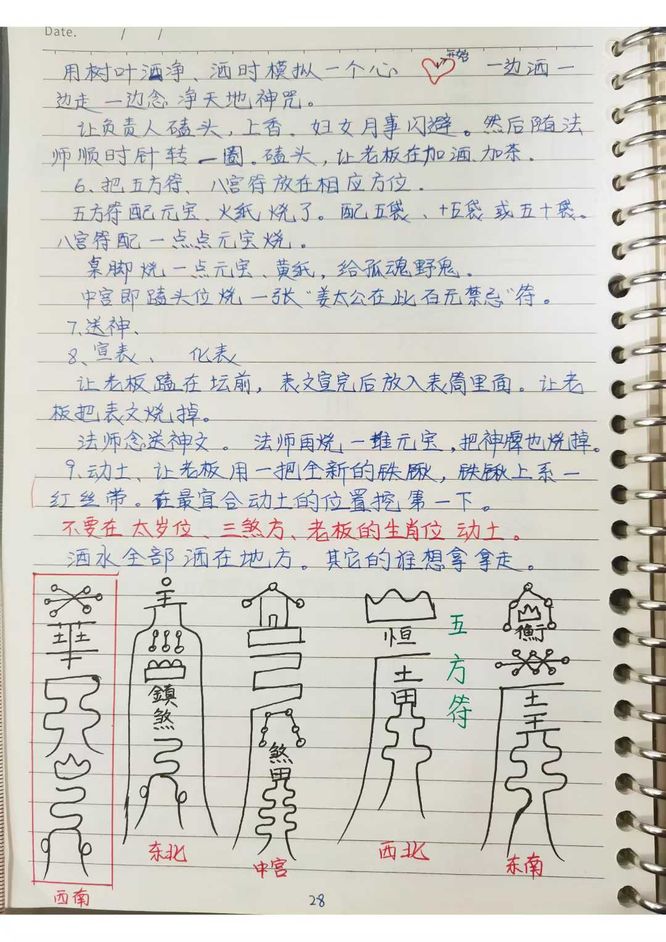 Date. / /
用树叶洒净、洒时模拟一个心 开始 一边洒一
边走一边念净天地神咒。
让负责人磕头,上香、妇女月事闪避。然后随法
师顺时针转一圈.磕头,让老板在加酒.加茶.
6、把五方符、八宫符放在相应方位.
五方符配元宝、火纸烧了。配五袋、十五袋或五十袋。
八宫符配一点点元宝烧。
桌脚烧一点元宝、黄纸,给孤魂野鬼。
中宫即跪头位烧一张“姜太公在此百无禁忌”符。
7.送神、
8、宣表、化表
让老板跪在坛前,表文宣完后放入表筒里面。让老
板把表文烧掉。
法师念送神文。法师再烧一堆元宝,把神牌也烧掉。
9.动土、让老板用一把全新的铁锹,铁锹上系一
红丝带。在最宜合动土的位置挖第一下。
不要在太岁位、三煞方、老板的生肖位动土。
洒水全部洒在地方。其它的谁想拿拿走。
五方符
華
鎮煞
煞田
恒
土田
衡
土王
西南
东北
中宫
西北
东南
28